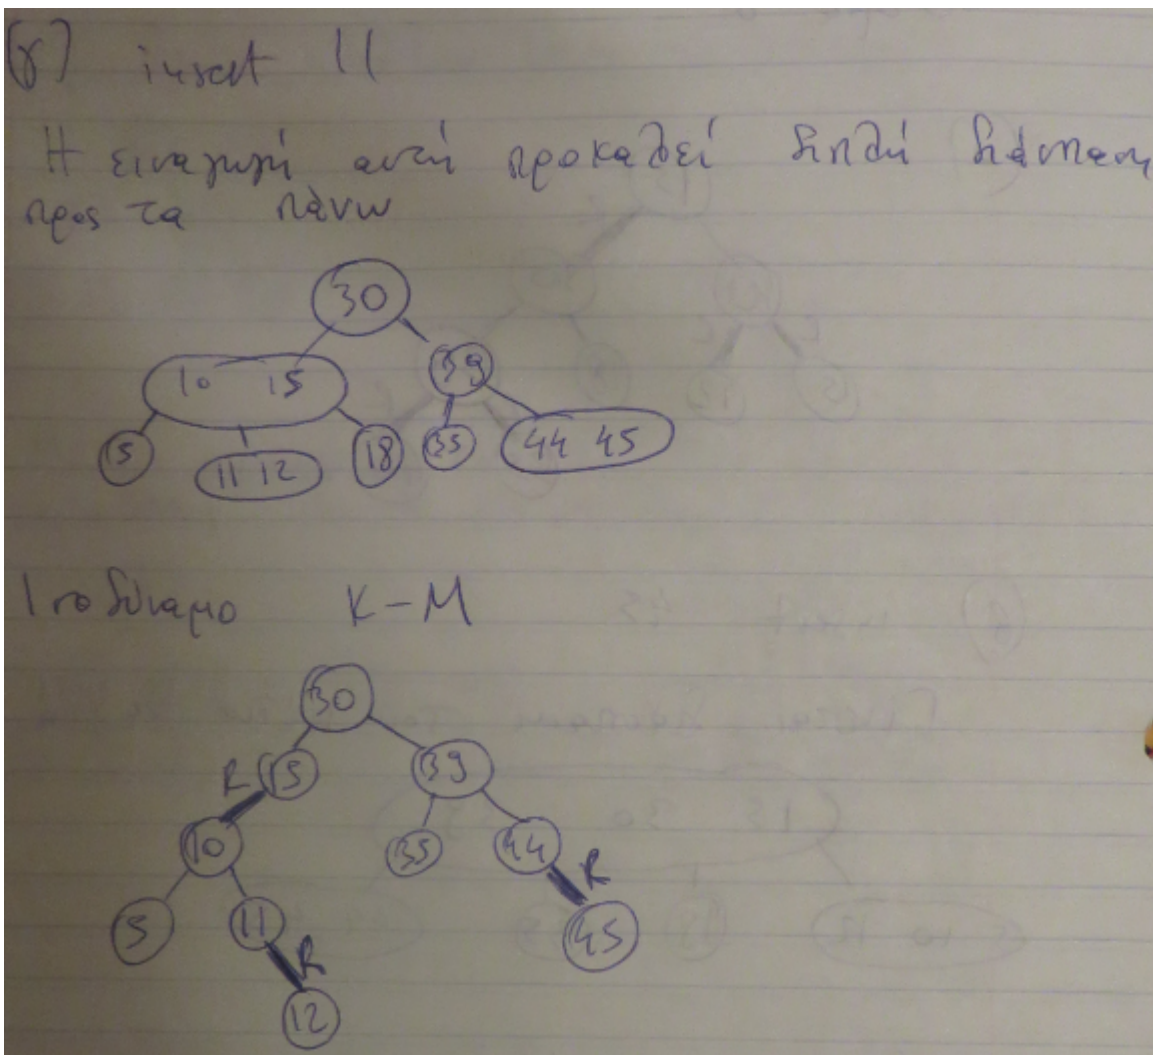 (γ) insert 11
Η εισαγωγή αυτή προκαλεί διπλή διάσπαση
προς τα πάνω
30
10 15 39
15 11 12 18 35 44 45
Ισοδύναμο Κ-Μ
30
R 15 39
10 35 44 R
5 11 R 45
12